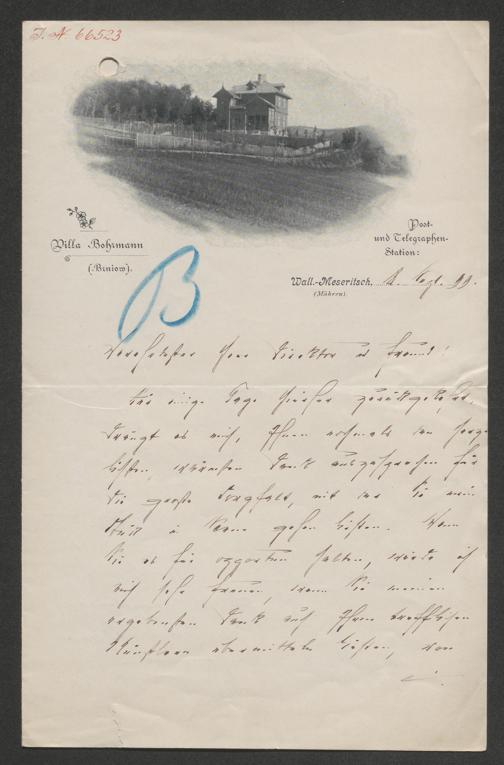 I. N. 66523
Villa Bohrmann
(Brniow).
Post-
und Telegraphen-
Station:
Wall.-Meseritsch, 99.
(Mähren).
B
Verehrtester Herr Direktor u Freund!
Für einige Tage hierher zurückgekehrt,
drängt es mich, Ihnen nochmals den herz-
lichsten, wärmsten Dank auszusprechen für
die große Sorgfalt, mit der Sie mein
Stück in Szene gehen ließen. Wenn
Sie es für opportun halten, würde ich
mich sehr freuen, wenn Sie meinen
ergebensten Dank auch Ihren trefflichen
Künstlern übermitteln ließen, von